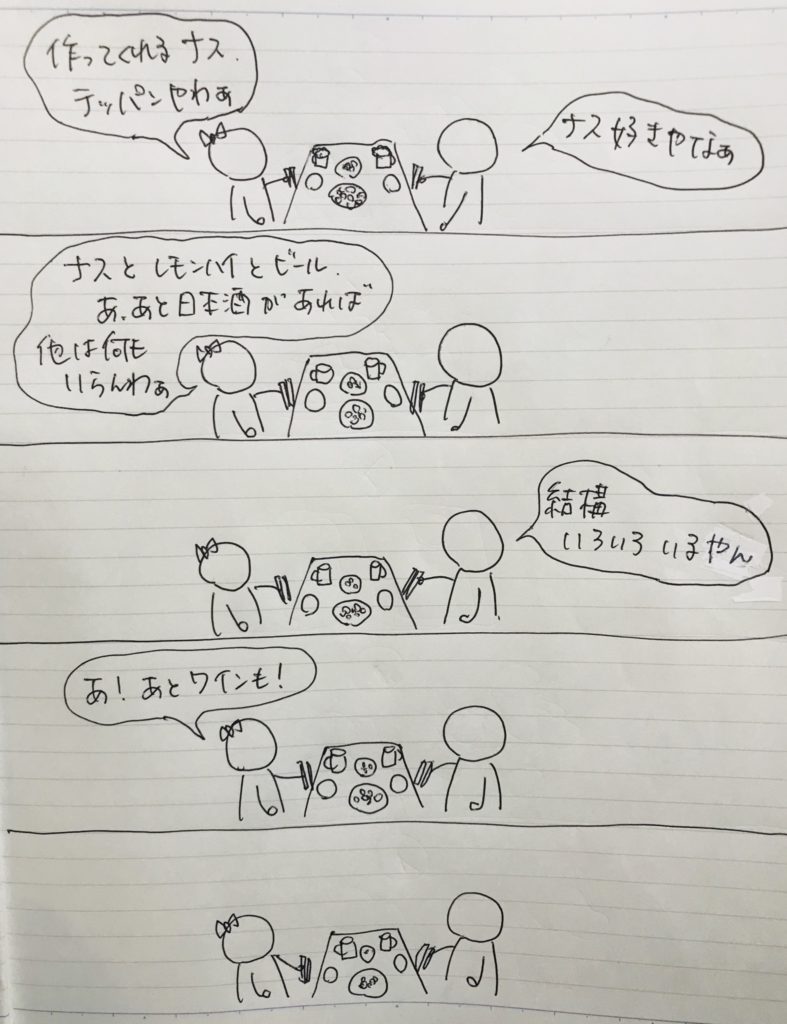 作ってくれるナス.
テッパンやわぁ
ナス好きやなぁ
ナスとレモンハイとビール.
あ、あと日本酒があれば
他は何も
いらんわぁ
結構
いろいろいるやん
あ!あとワインも!